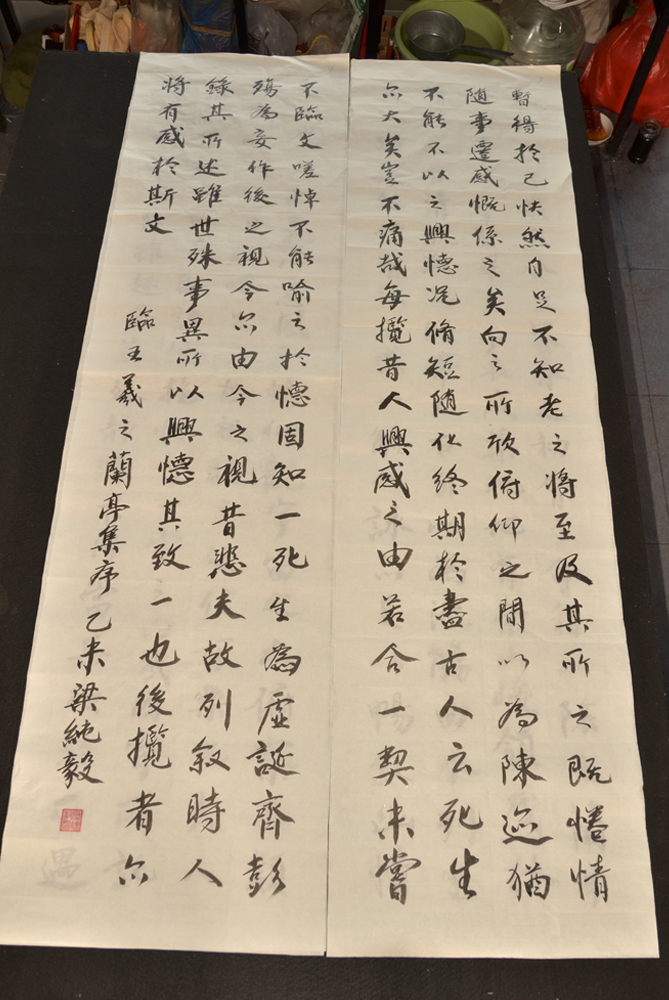 暫得於己快然自足不知老之將至及其所之既惓情
隨事遷感慨係之矣向之所欣俯仰之間以為陳迹猶
不能不以之興懷況脩短隨化終期於盡古人云死生
亦大矣豈不痛哉每攬昔人興感之由若合一契未嘗
不臨文嗟悼不能喻之於懷固知一死生為虛誕齊彭
殤為妄作後之視今亦由今之視昔悲夫故列敘時人
錄其所述雖世殊事異所以興懷其致一也後攬者亦
將有感於斯文
臨王羲之蘭亭集序乙未梁純毅